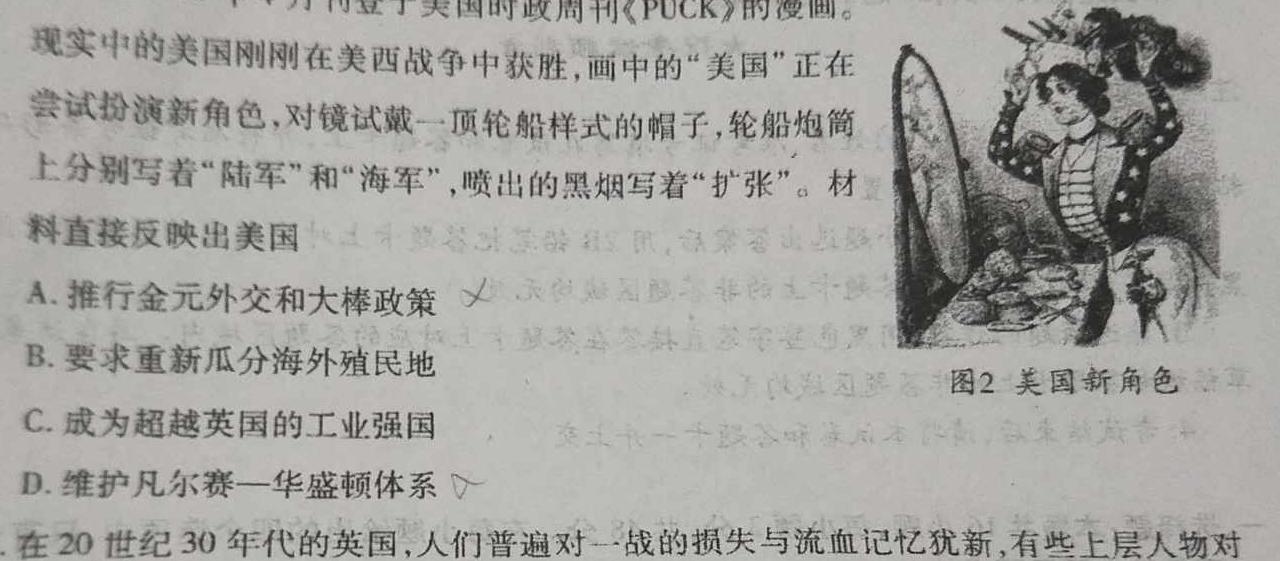 月刊登于美国时政周刊《PUCK》的漫画。
现实中的美国刚刚在美西战争中获胜,画中的“美国”正在
尝试扮演新角色,对镜试戴一顶轮船样式的帽子,轮船炮筒
上分别写着“陆军”和“海军”,喷出的黑烟写着“扩张”。材
料直接反映出美国
A. 推行金元外交和大棒政策
B. 要求重新瓜分海外殖民地
C. 成为超越英国的工业强国
D. 维护凡尔赛—华盛顿体系
图2 美国新角色
. 在 20 世纪 30 年代的英国,人们普遍对一战的损失与流血记忆犹新,有些上层人物对